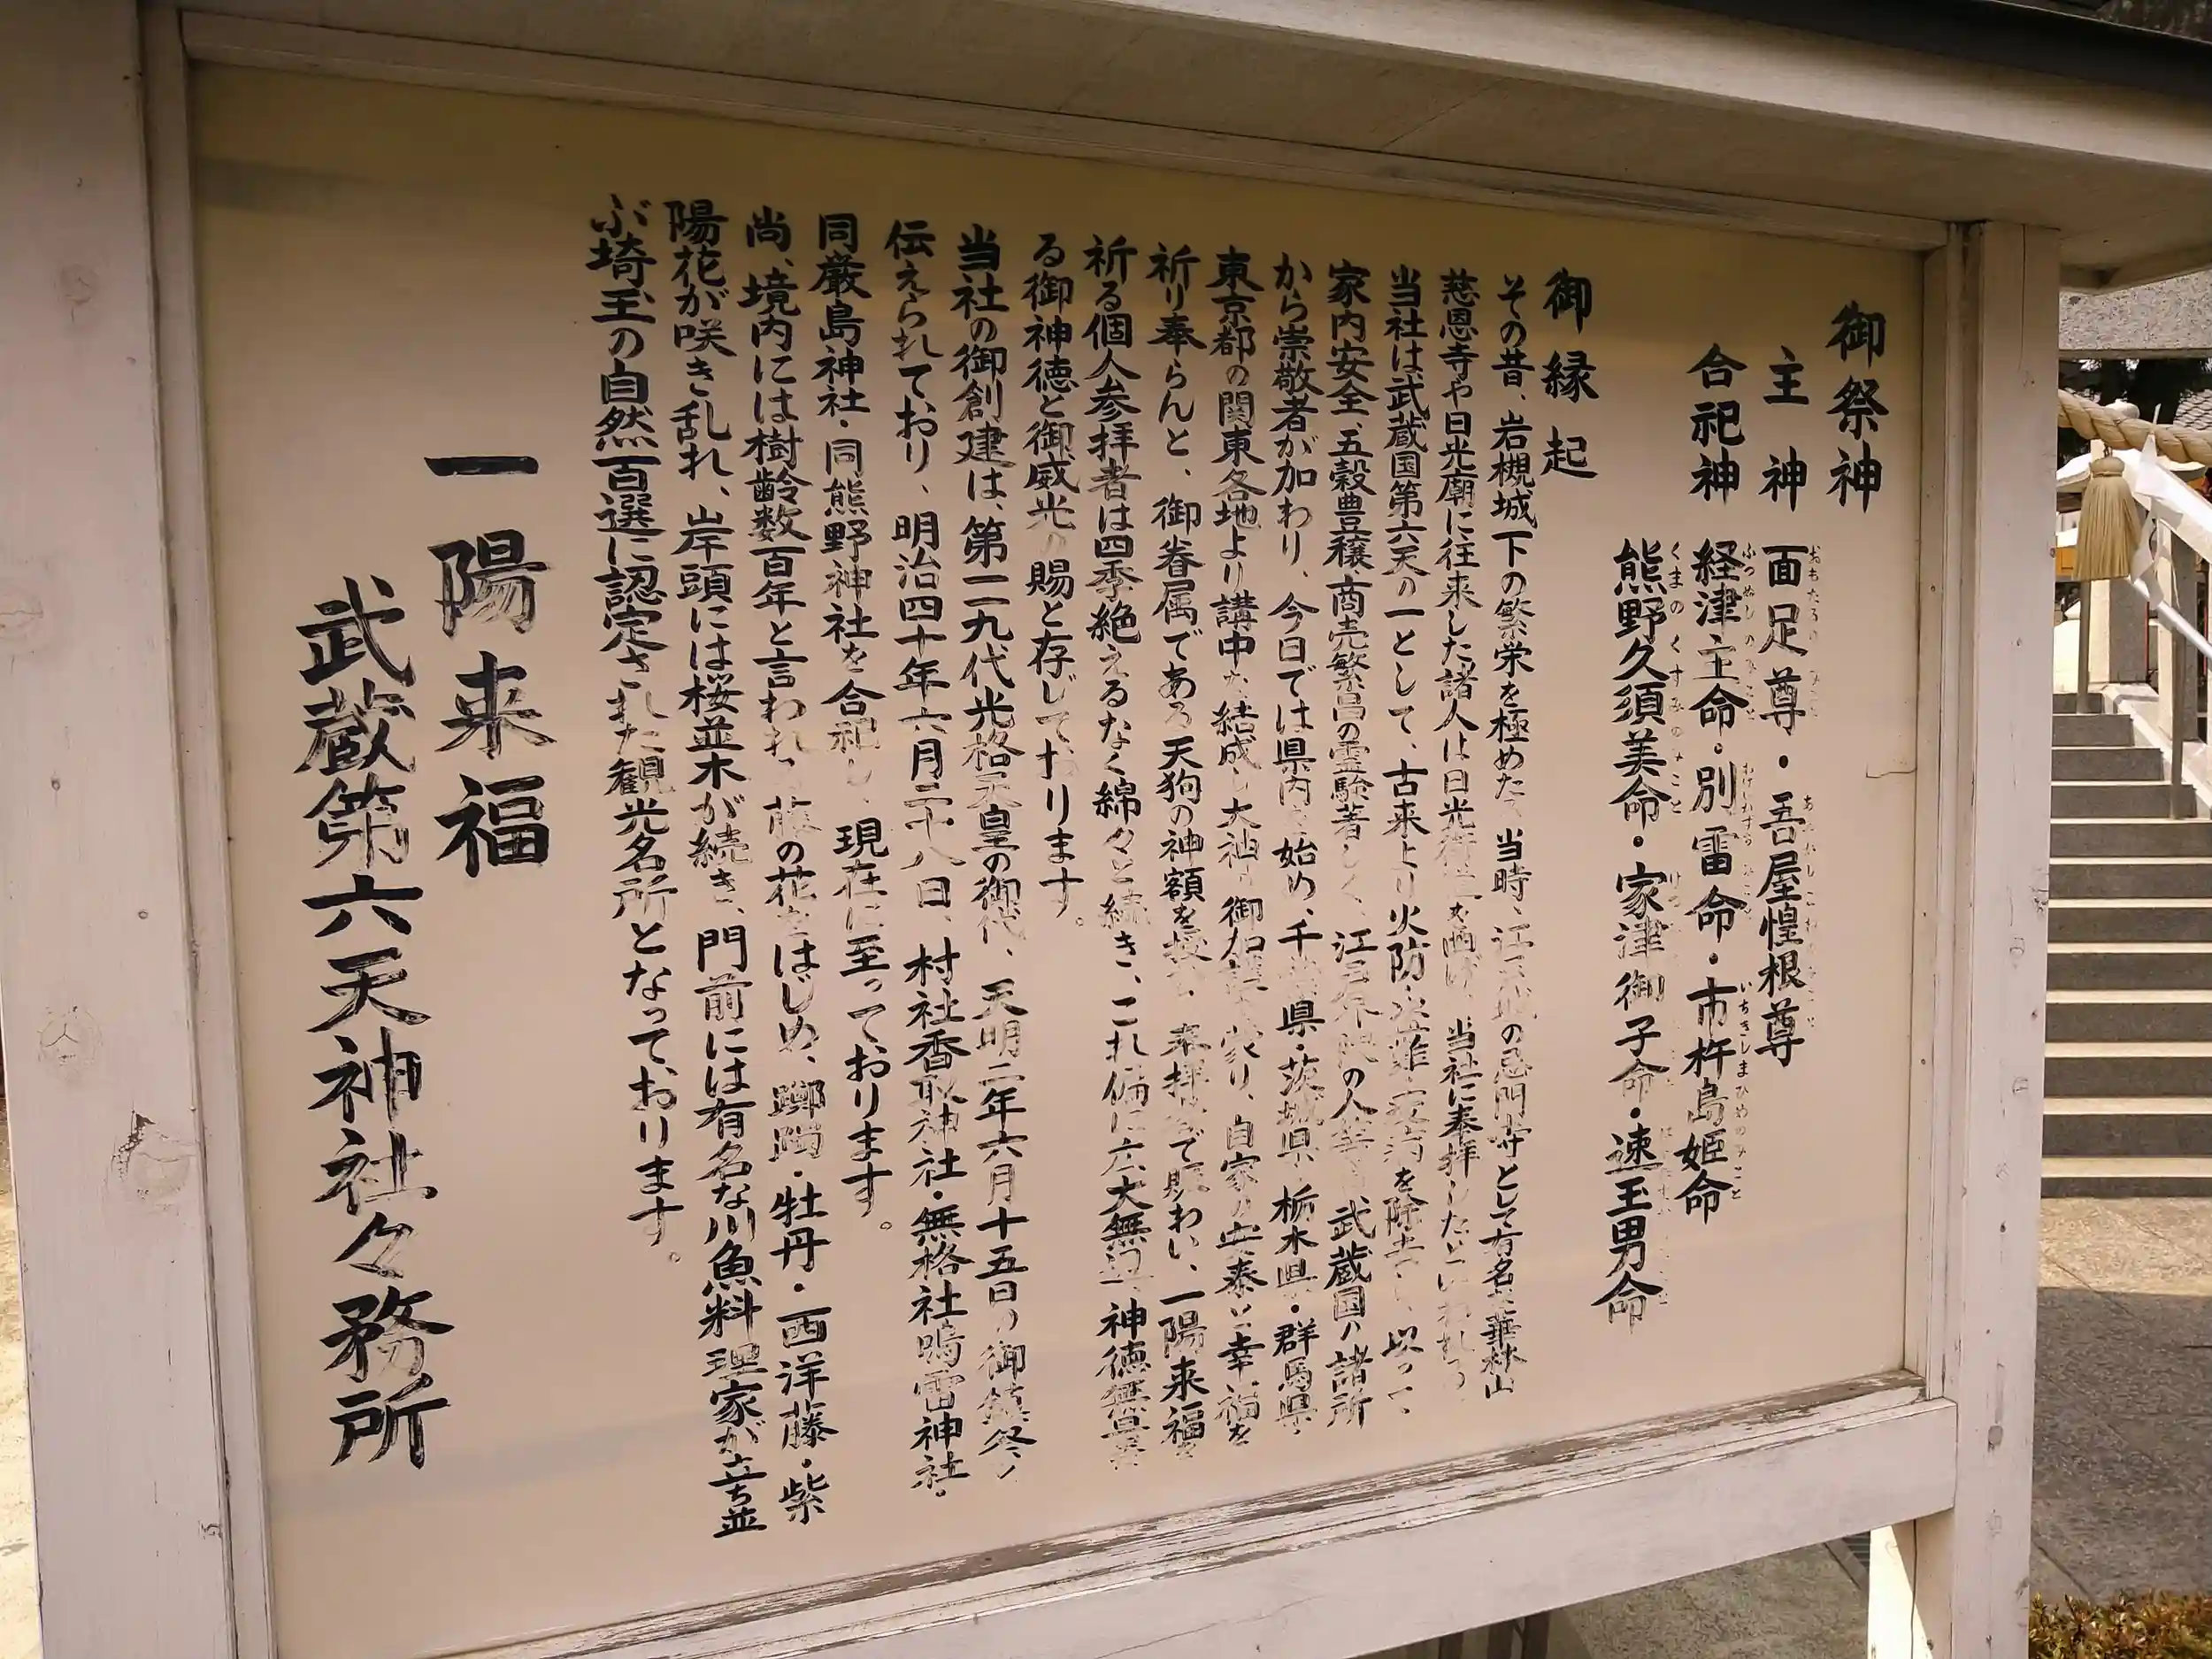 御祭神
主神 面足尊・吾屋惶根尊
合祀神 経津主命・別雷命・市杵島姫命
熊野久須美命・家津御子命・速玉男命
御縁起
その昔、岩槻城下の繁栄を極めた 当時、江戸 の忌門寺として有名 華林山
慈恩寺や日光廟に往来した諸人は日光 当社に奉拝したといわれ
当社は武蔵国第六天の一として、古来より火防・ を除去し、以って
家内安全、五穀豊穣、商売繁昌の霊験著しく、江戸 の人 武蔵国の諸所
から崇敬者が加わり、今日では県内 始め、千葉県・茨城県・栃木県・群馬県・
東京都の関東各地より講中を結成し大神 御加護を蒙り、自家の安泰と幸福を
祈り奉らんと、御眷属である天狗の神額を 奉拝 で賑わい、一陽来福を
祈る個人参拝者は四季絶えるなく綿々と続き、これ偏に広大無辺、神徳無量
る御神徳と御威光の賜と存じております。
当社の御創建は、第一一九代光格天皇の御代、天明二年六月十五日の御鎮祭
伝えられており、明治四十年六月二十八日、村社香取神社・無格社鳴雷神社・
同厳島神社・同熊野神社を合祀し、現在に至っております。
尚、境内には樹齢数百年と言われ 藤の花をはじめ、躑躅・牡丹・西洋藤・紫
陽花が咲き乱れ、岸頭には桜並木が続き、門前には有名な川魚料理家が立ち並
ぶ埼玉の自然百選に認定された観光名所となっております。
一陽来福
武蔵第六天神社々務所